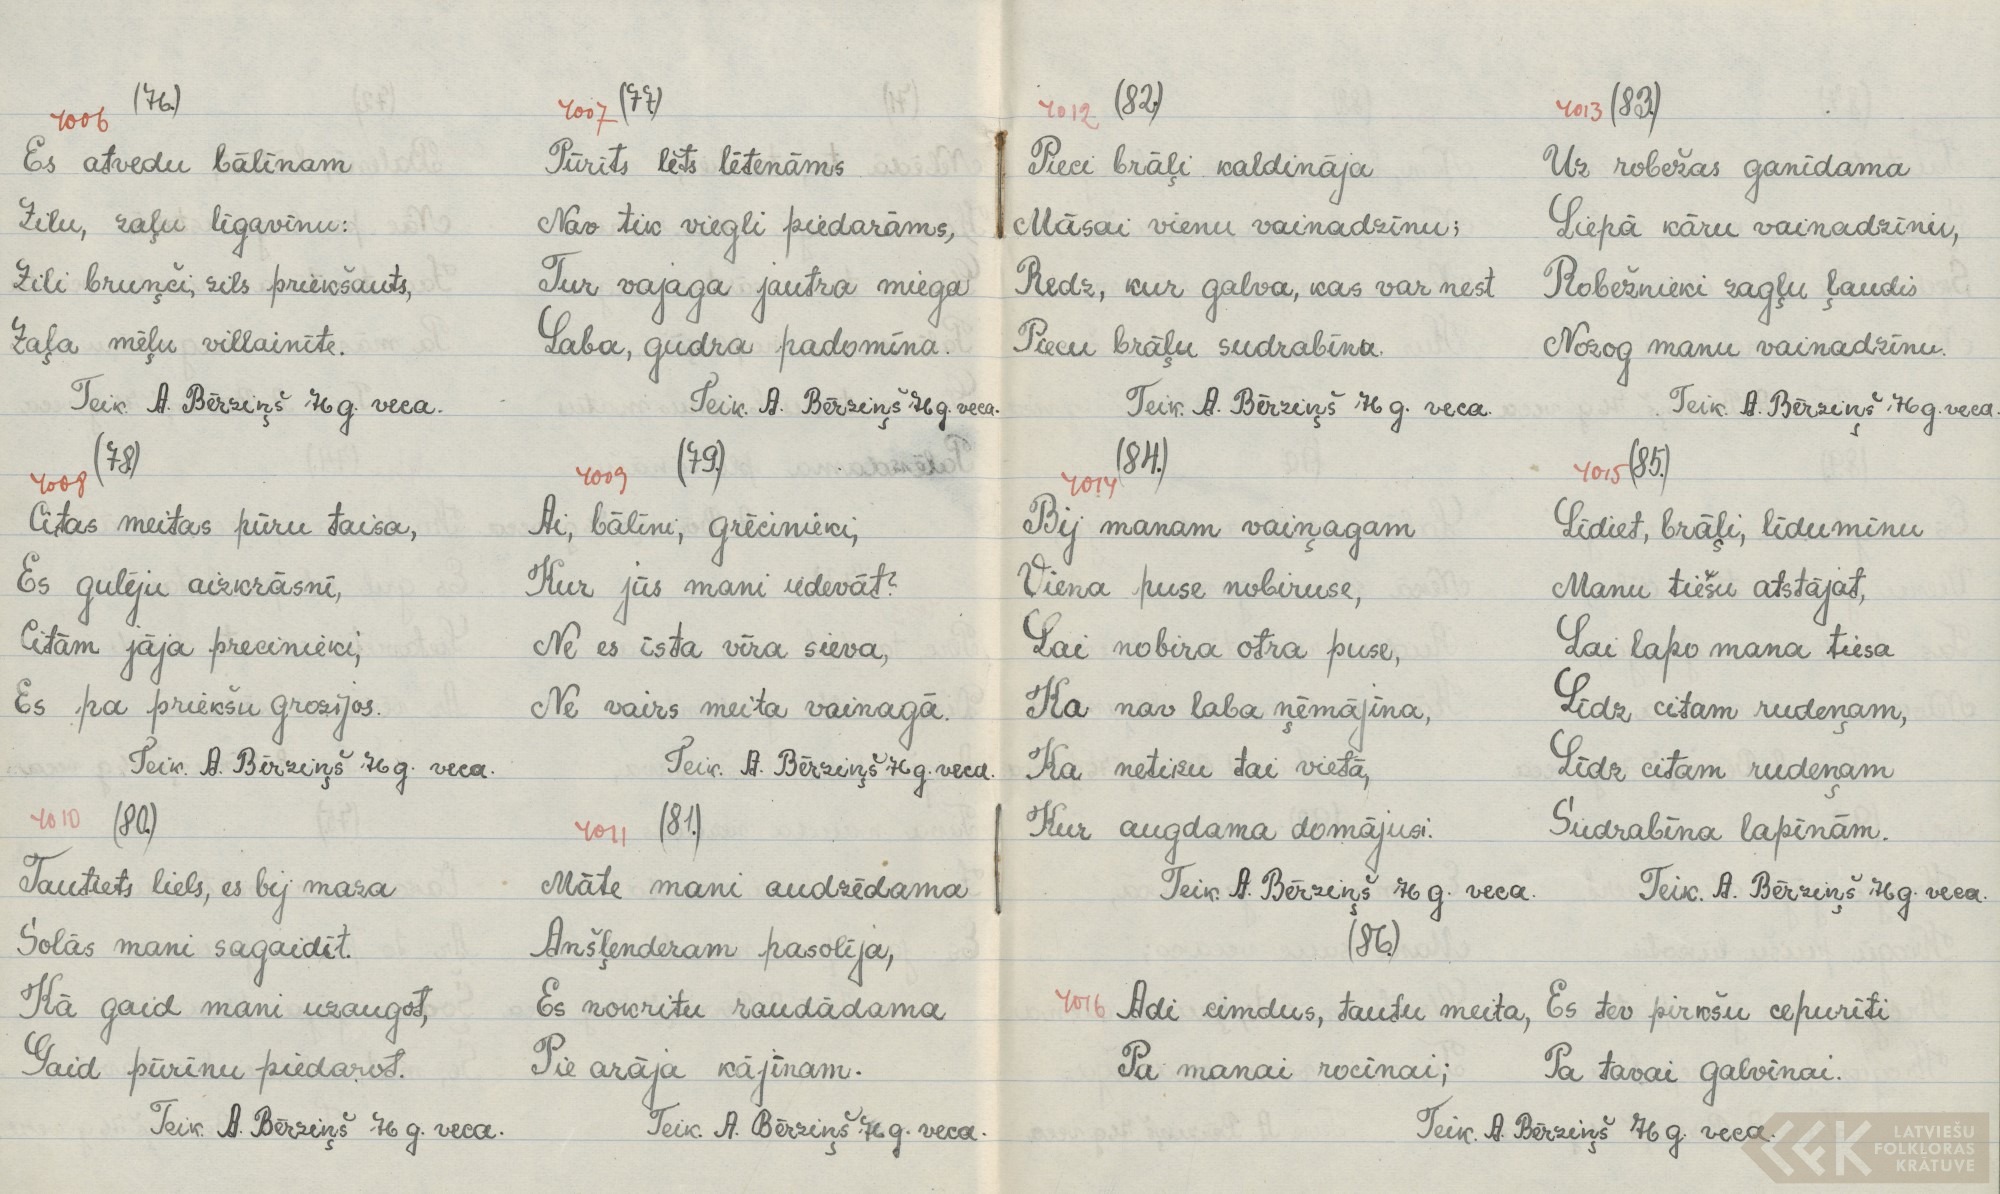 4006 (76.)
Es atvedu bālīnam
Zilu, zaļu līgavīnu:
Zili bruņči, zils priekšauts,
Zaļa mēļu villainīte.
Teik. A. Bērziņš 76 g. veca.
4007 (77)
Pūrits lēts lētenāms
Nav tik viegli piedarāms,
Tur vajaga jautra miega
Laba, gudra padomīna.
Teik. A. Bērziņš 76 g. veca.
4008 (78)
Citas meitas pūru taisa,
Es gulēju aizkrāsnī,
Citām jāja precinieki,
Es pa priekšu grozījos.
Teik. A. Bērziņš 76 g. veca.
4009 (79.)
Ai, bālīni, grēcinieki,
Kur jūs mani iedevāt?
Ne es īsta vīra sieva,
Ne vairs meita vainagā.
Teik. A. Bērziņš 76 g. veca.
4010 (80.)
Tautiets liels, es bij maza
Solās mani sagaidīt.
Kā gaid mani uzaugot,
Gaid pūrīnu piedarot.
Teik. A. Bērziņš 76 g. veca.
4011 (81.)
Māte mani audzēdama
Anšļenderam pasolīja,
Es nokritu raudādama
Pie arāja kājīnam.
Teik. A. Bērziņš 76 g. veca.
4012 (82)
Pieci brāļi kaldināja
Māsai vienu vainadzīnu;
Redz, kur galva, kas var nest
Piecu brāļu sudrabīnu.
Teik. A. Bērziņš 76 g. veca.
4013 (83.)
Uz robežas ganīdama
Liepā kāru vainadzīnu,
Robežnieki zagļu ļaudis
Nozog manu vainadzīnu.
Teik. A. Bērziņš 76 g. veca.
4014 (84.)
Bij manam vaiņagam
Viena puse nobiruse,
Lai nobira otra puse,
Ka nav laba ņēmājīna,
Ka netiku tai vietā,
Kur augdama domājusi.
Teik. A. Bērziņš 76 g. veca.
4015 (85.)
Līdiet, brāļi, līdumīnu
Manu tiešu atstājat,
Lai lapo mana tiesa
Līdz citam rudeņam,
Līdz citam rudeņam
Sudrabīna lapīnām.
Teik. A. Bērziņš 76 g. veca.
(86.)
4016 Adi cimdus, tautu meita,
Pa manai rocīnai;
Es tev pirkšu cepurīti
Pa tavai galvīnai.
Teik. A. Bērziņš 76 g. veca.
LATVIEŠU
FOLKLORAS
KRĀTUVE